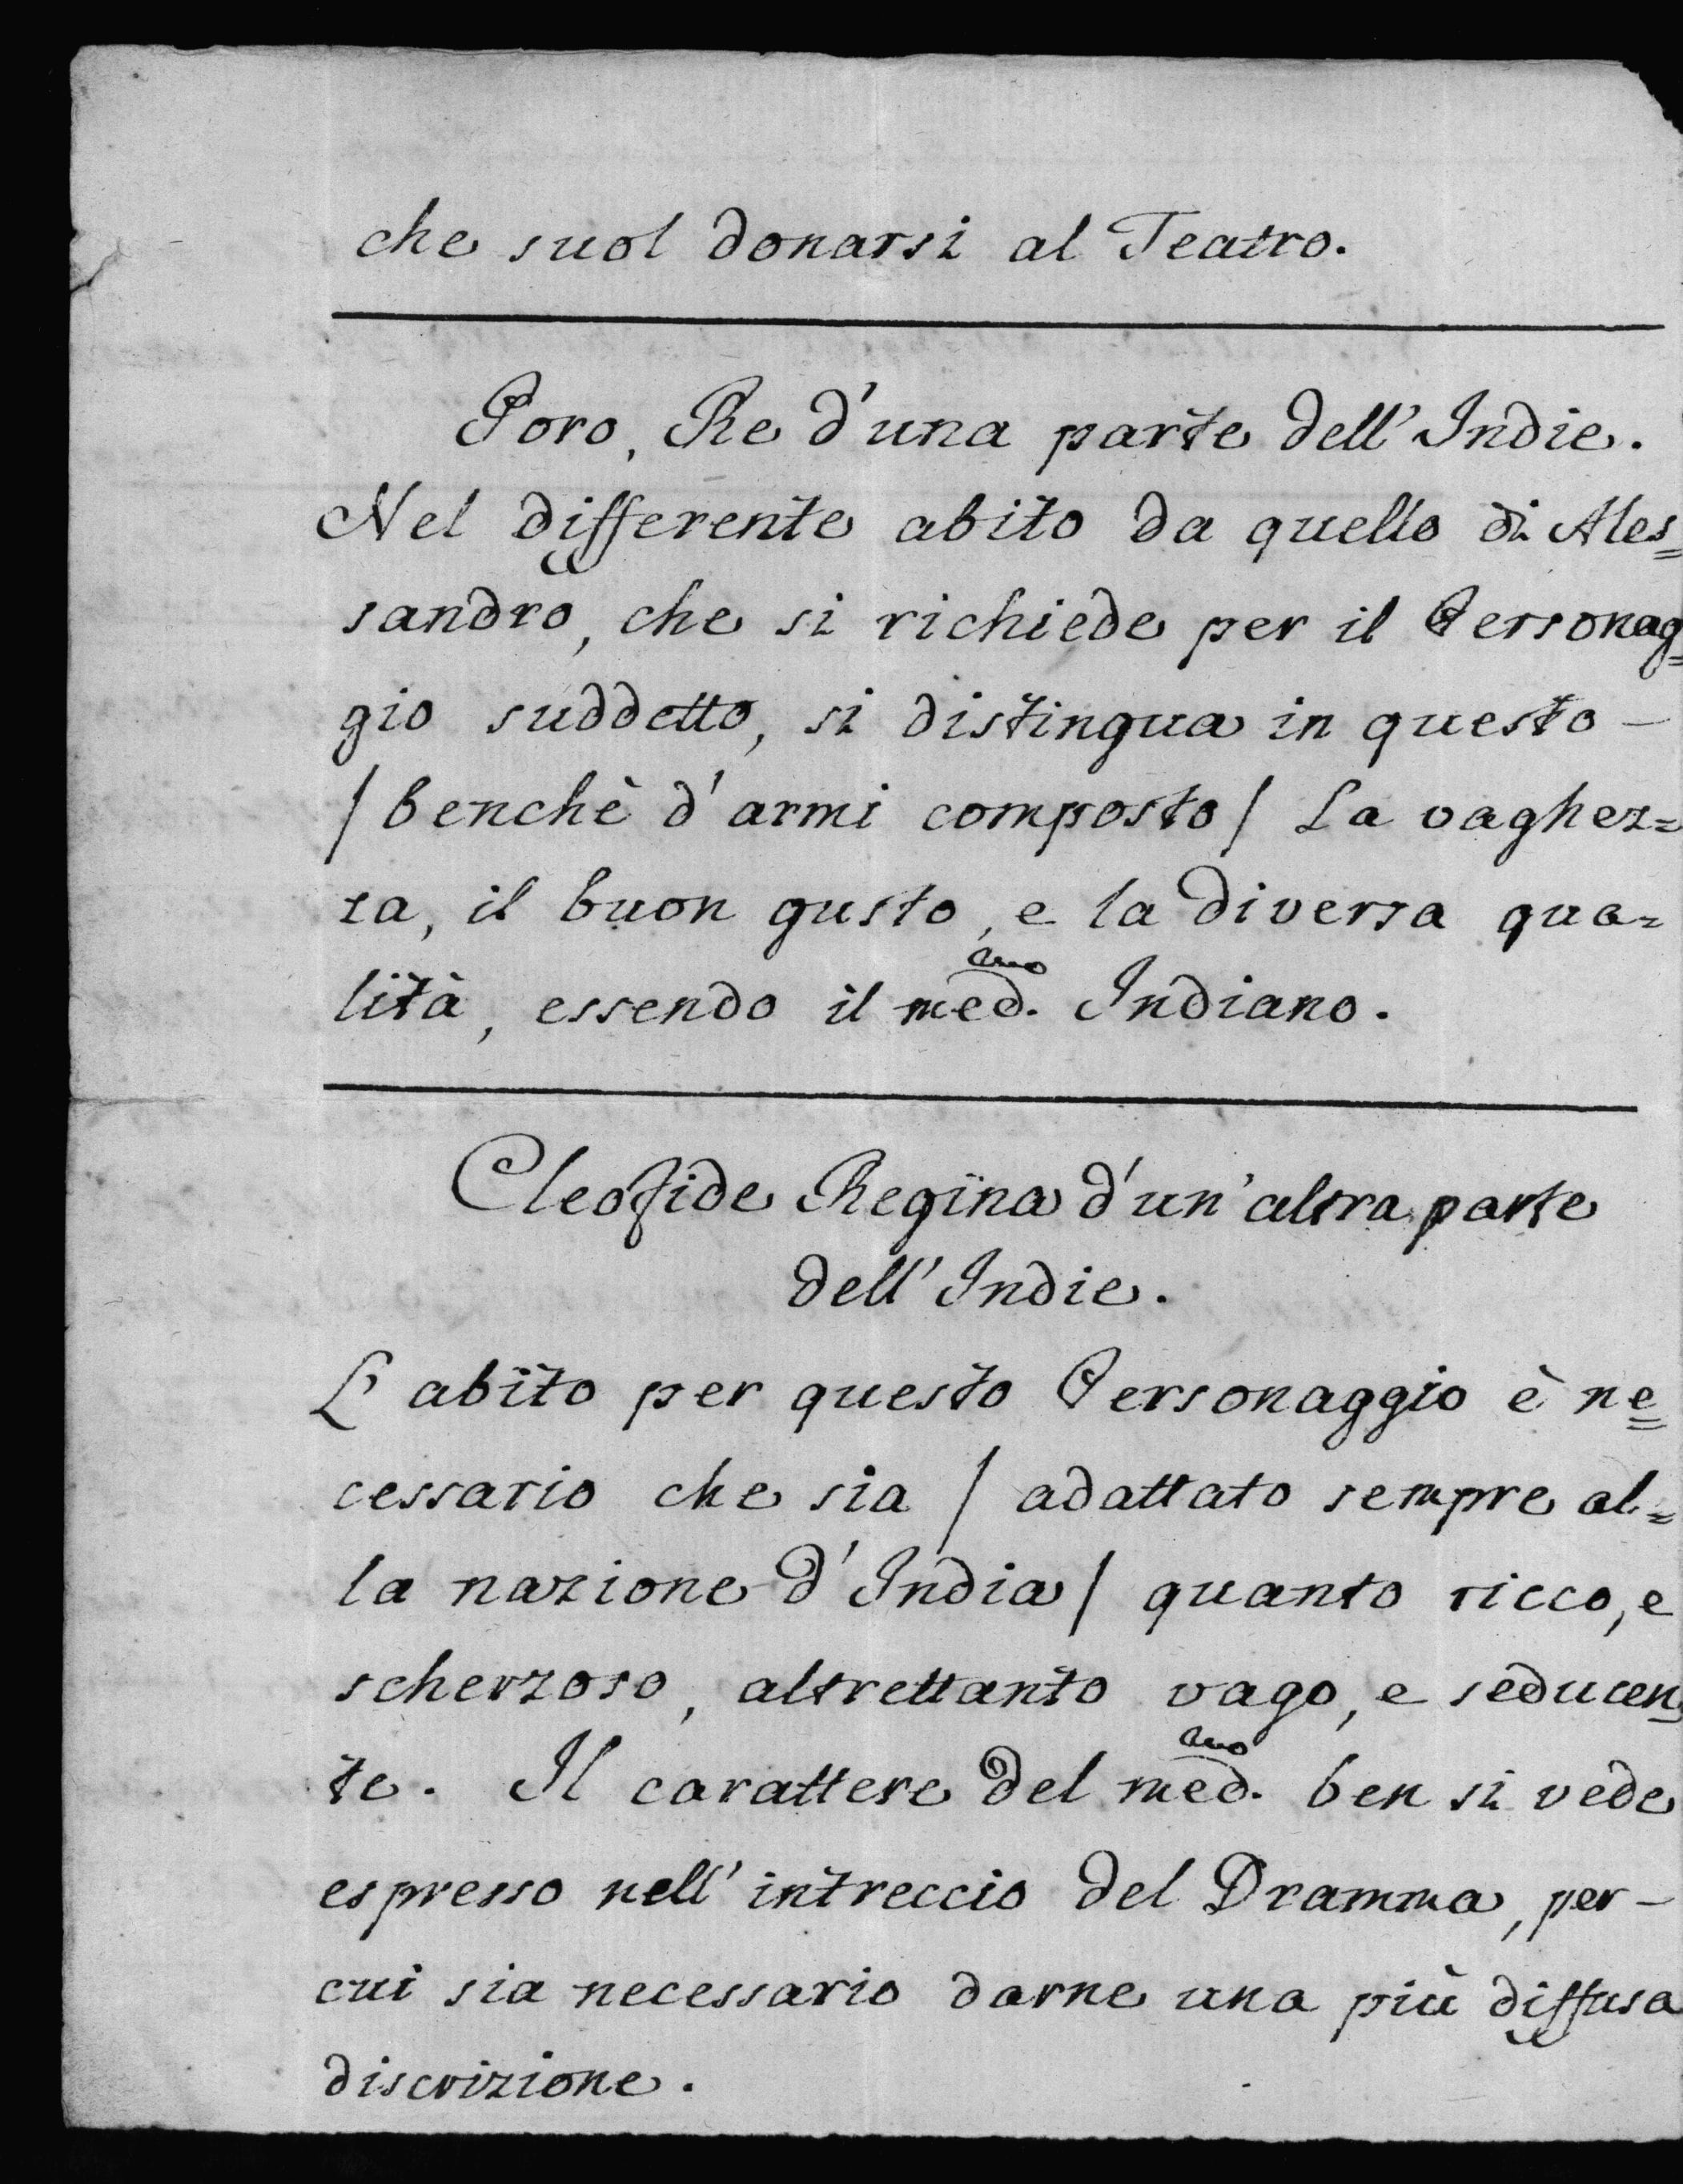 che suol donarsi al Teatro.
Poro, Re d'una parte dell'Indie.
Nel differente abito da quello di Ales=
sandro, che si richiede per il Personag=
gio suddetto, si distingua in questo –
/ benchè d'armi composto / La vaghez=
za, il buon gusto, e la diversa qua=
lità, essendo il med.mo Indiano.
Cleofide Regina d'un'altra parte
dell'Indie.
L'abito per questo Personaggio è ne=
cessario che sia / adattato sempre al=
la nazione d'India / quanto ricco, e
scherzoso, altrettanto vago, e seducen=
te. Il carattere del med.mo ben si vede
espresso nell'intreccio del Dramma, per –
cui sia necessario darne una più diffusa
discrizione.